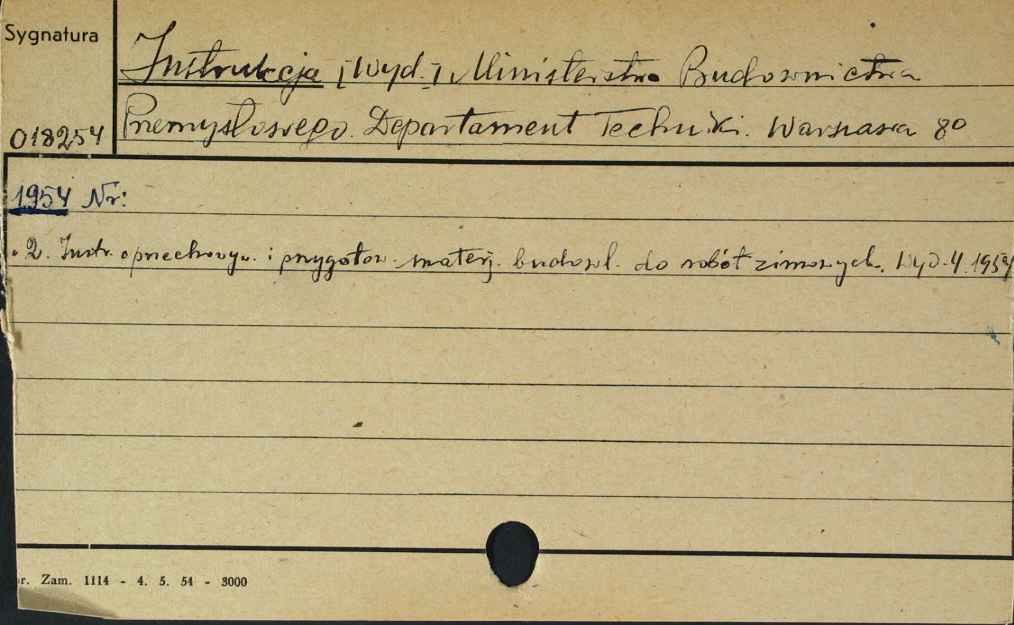 Sygnatura
018254
Instrukcja [Wyd.] Ministerstwo Budownictwa
Przemysłowego. Departament Techniki. Warszawa 8°
1954 Nr:
2. Instr. o przechowyw. i przygotow. materj. budowl. do robót zimowych. Wyd. 4. 1954
r. Zam. 1114 - 4. 5. 54 - 3000